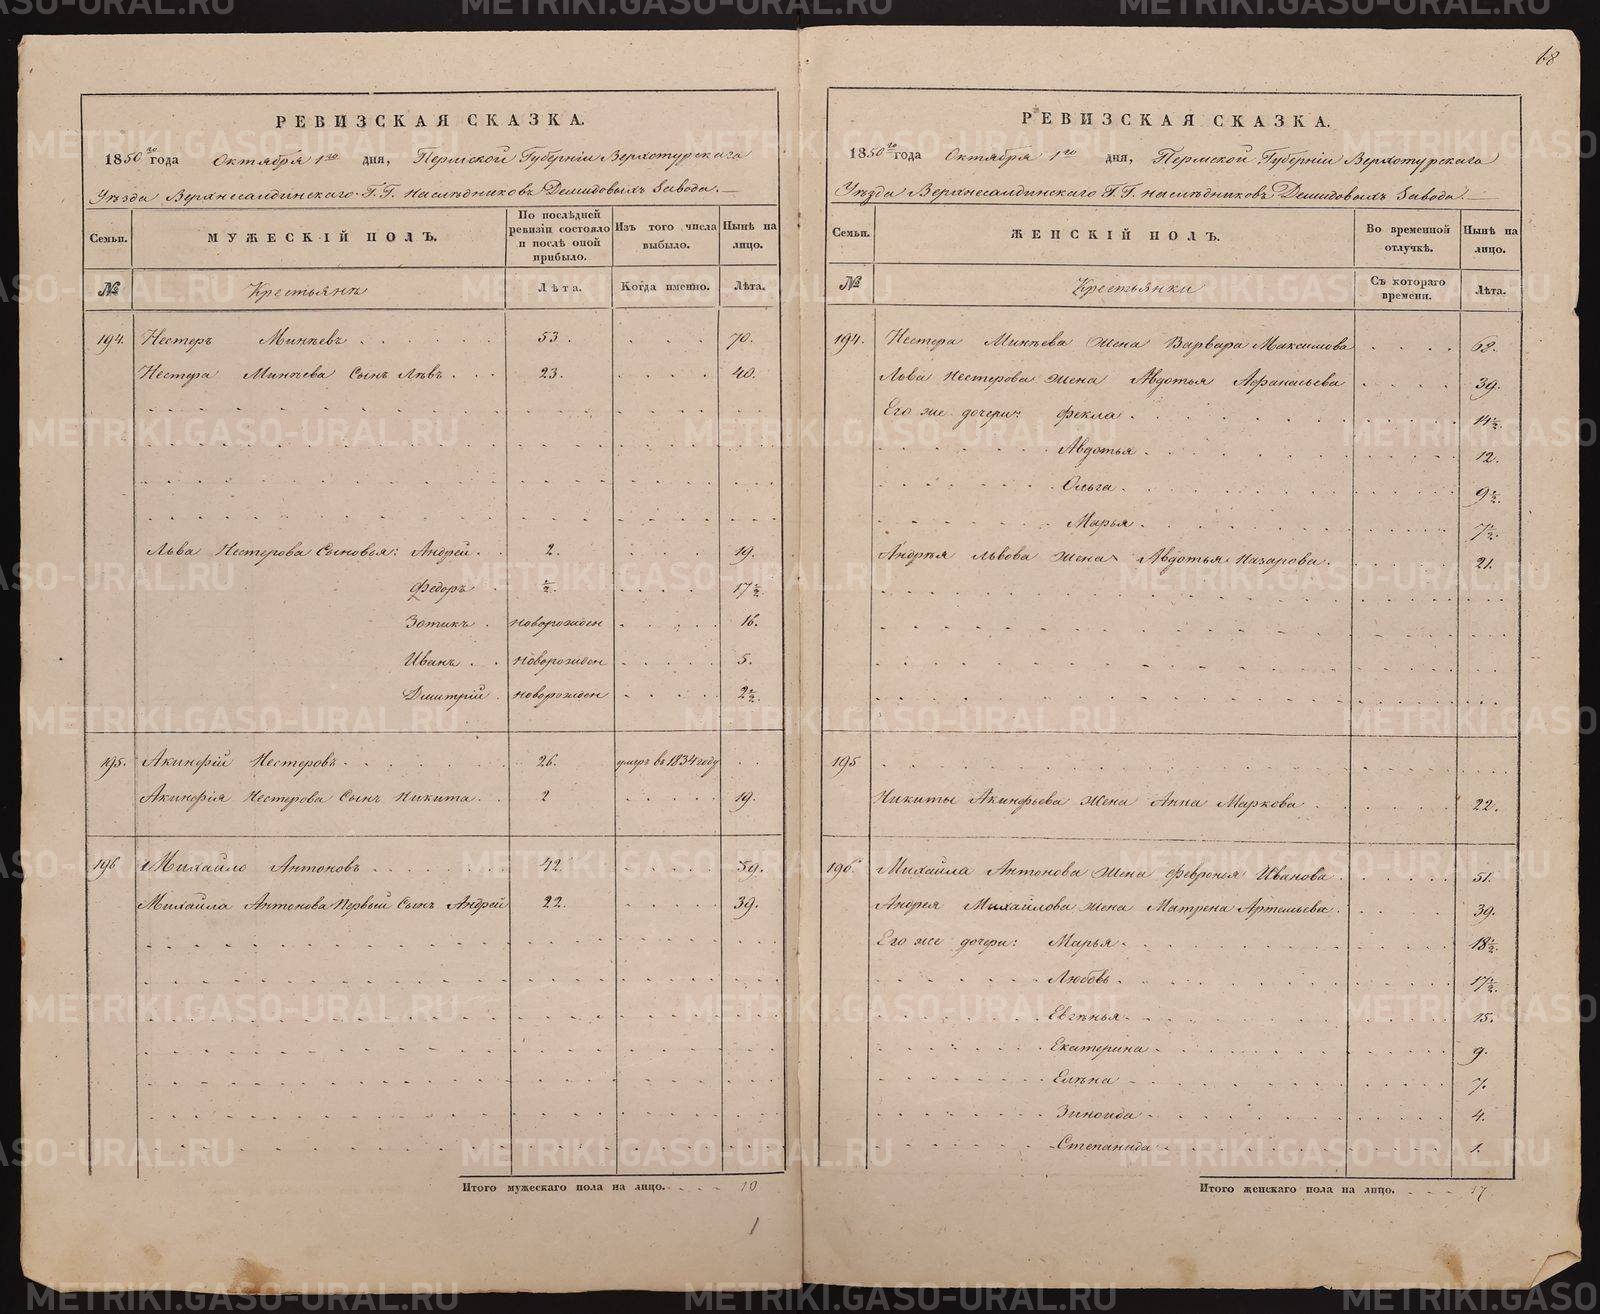 РЕВИЗСКАЯ СКАЗКА.
1850го года Октября 1го дня, Пермской Губернiи Верхотурскаго
Уѣзда Верхнесалдинскаго Г.Г. наслѣдниковъ Демидовыхъ Завода.
Семьи.
МУЖЕСКІЙ ПОЛЪ.
По послѣдней ревизіи состояло и послѣ оной прибыло.
Изъ того числа выбыло.
Нынѣ на лицо.
№
Крестьянѣ
Лѣта.
Когда именно.
Лѣта.
194. Несторъ Минѣевъ 53. 70.
Нестера Минѣева Сынъ Лѣвъ 23. 40.
Льва Нестерова Сыновья: Андрей. 2. 19.
Федоръ ½. 17½.
Зотикъ новорожден 16.
Иванъ новорожден 5.
Дмитрій новорожден 2½.
195. Акинфій Нестеровъ 26. умеръ въ 1834 году
Акинфія Нестерова Сынъ Никита 2 19.
196 Михайло Антоновъ 42. 59.
Михайла Антонова Первый Сынъ Андрей 22. 39.
Итого мужескаго пола на лицо. 10
1
18
РЕВИЗСКАЯ СКАЗКА.
1850го года Октября 1го дня, Пермской Губернiи Верхотурскаго
Уѣзда Верхнесалдинскаго Г.Г. наслѣдниковъ Демидовыхъ Завода.
Семьи.
ЖЕНСКІЙ ПОЛЪ.
Во временной отлучкѣ.
Нынѣ на лицо.
№
Крестьянки
Съ котораго времени.
Лѣта.
194. Нестера Минѣева жена Варвара Максимова 62.
Льва Нестерова жена Авдотья Афанасьева 39.
Его же дочери: Фекла 14½.
Авдотья 12.
Ольга 9½.
Марья 7½.
Андрѣя Львова жена Авдотья Назарова. 21.
195
Никиты Акинфьева жена Анна Маркова 22.
196. Михайла Антонова жена Февронья Иванова 51.
Андрея Михайлова жена Матрена Артемьева 39.
Его же дочери: Марья 18½.
Любовь 17½.
Евгѣнья 15.
Екатерина 9.
Елѣна 7.
Зиноида 4.
Степанида 1.
Итого женскаго пола на лицо. 17
METRIKI.GASO-URAL.RU